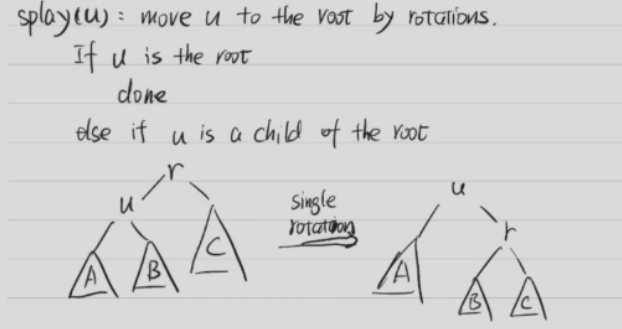 splay(u) : move u to the root by rotations.
If u is the root
done
else if u is a child of the root
r
u
C
A
B
single
rotation
u
r
A
B
C